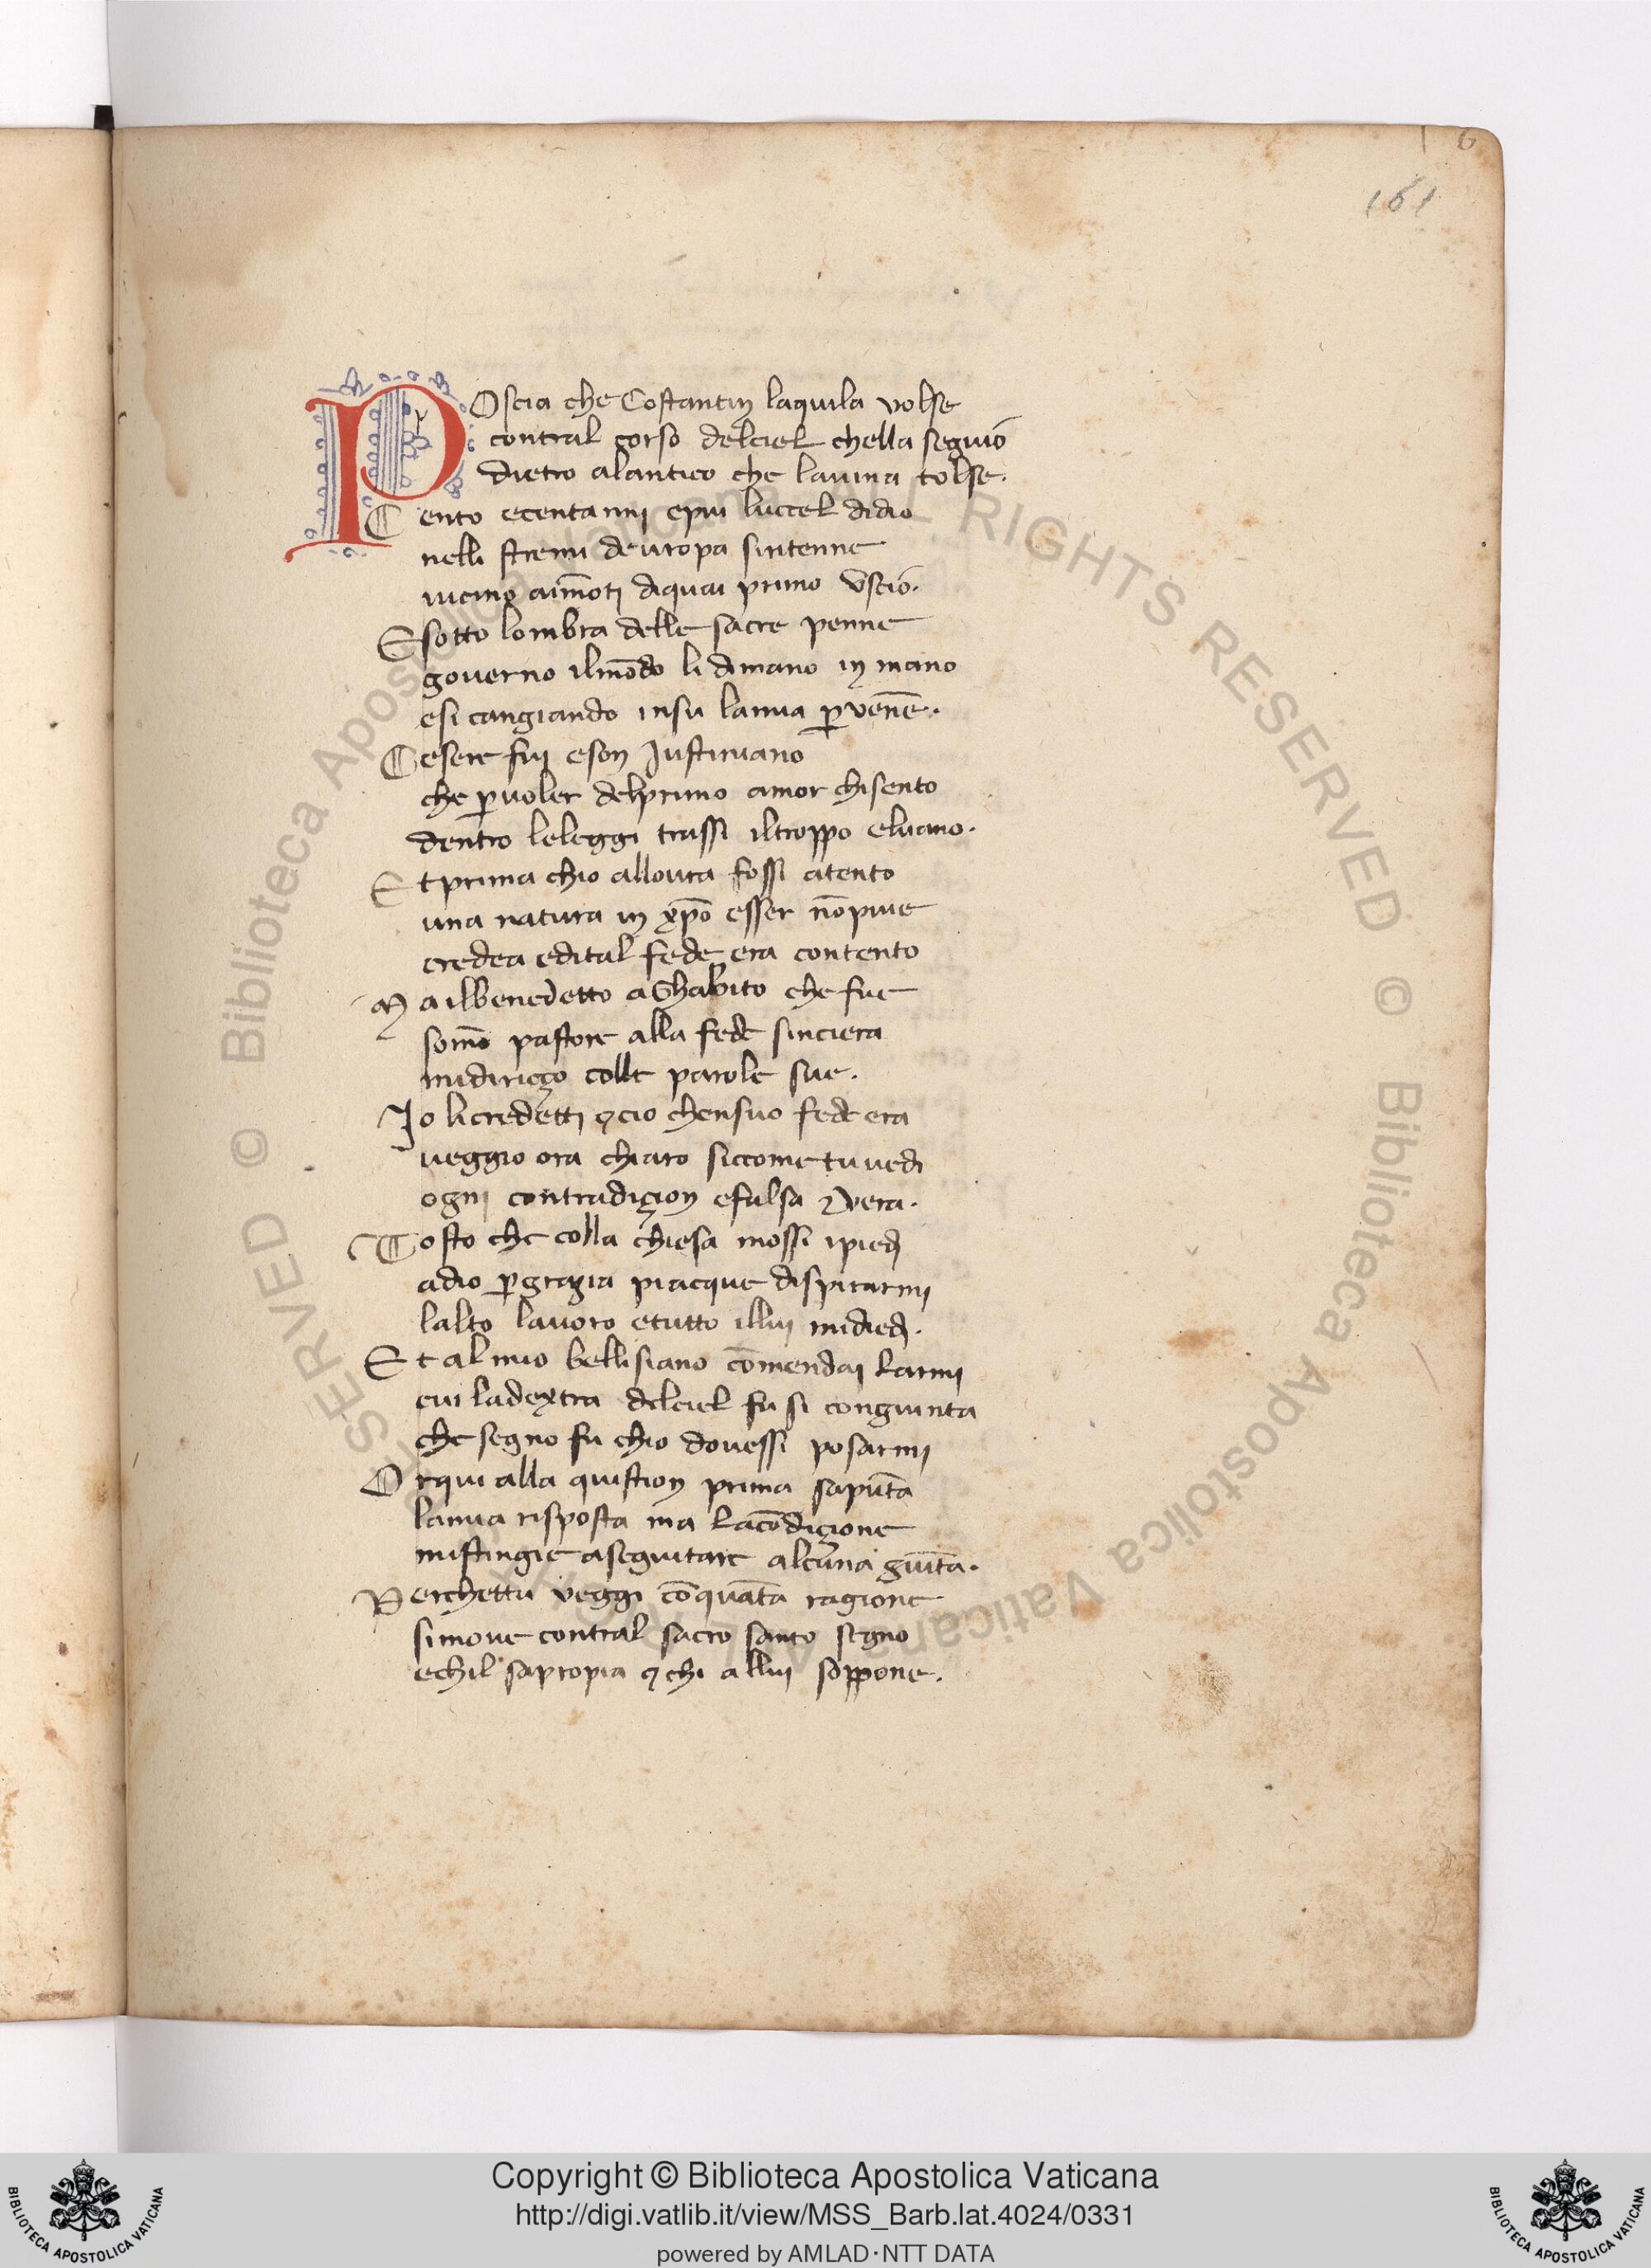 6
161
POscia che Costantin laquila volse
contral corso delciel chella seguio
dietro alantico che lauina tolse.
Cento ecentanni epiu luccel didio
nelli stremi deuropa siritenne
uicino aimōti diquai primo vscio.
Esotto lombra delle sacre penne
gouerno ilmōdo li dimano in mano
esi cangiando insu lamia ꝑvenē.
Cesere fui eson Justiniano
che ꝑuoler delprimo amor chisento
dentro leleggi trassi iltroppo eluano.
Et prima chio allovra fossi atento
una natura in xp̄o esser nōpiue
credea edital fede era contento
Ma ilbenedetto aGhabito che fue
som̄o pastore alla fede sinciera
midiriçço colle parole sue.
Io licredetti ꝯcio chensuo fede era
ueggio ora chiaro siccome tuuedi
ogni contradiçion efalsa ⁊vera.
Tosto che colla chiesa mossi ipiedi
adio ꝑgrazia piacque dispirarmi
lalto lauoro etutto illui midiedi.
Et al mio bellisiano cōmendai larmi
cui ladextra delciel fu si congiunta
che segno fu chio douessi posarmi
Orqui alla quistion prima sapūta
lamia risposta ma lacōdiçione
mistingie aseguitare alcuna giūta.
Perchettu veggi cōquāta ragione
simoue contral sacro santo segno
echil sapropia ꝯchi allui soppone.
Biblioteca Apostolica Vaticana ALL RIGHTS RESERVED ©
Copyright © Biblioteca Apostolica Vaticana
http://digi.vatlib.it/view/MSS_Barb.lat.4024/0331
powered by AMLAD·NTT DATA
BIBLIOTECA APOSTOLICA VATICANA
BIBLIOTECA APOSTOLICA VATICANA